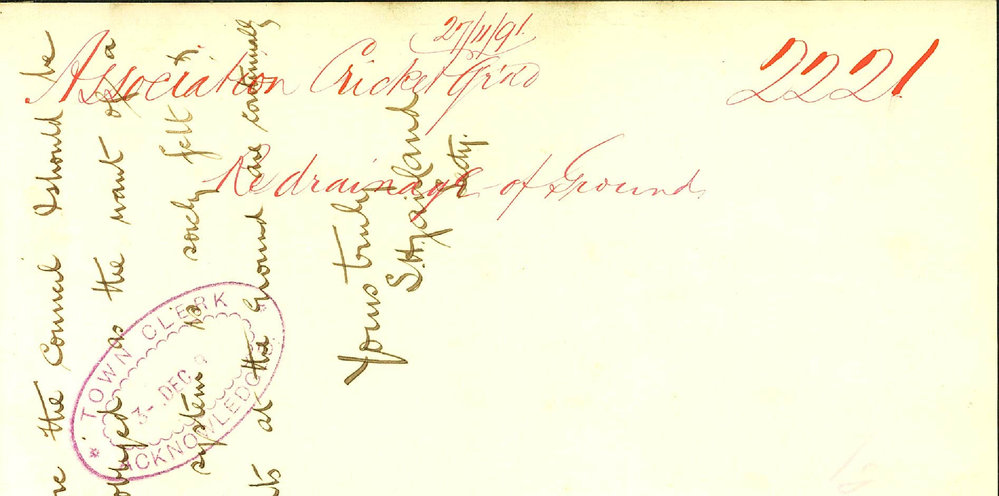 27/11/91
Association Cricket Gr'nd
2221
Re drainage of Ground
the Council I should be
obliged as the want of a
system is sorely felt &
at the Ground are continually
Yours truly
Secty.
TOWN CLERK
3 - DEC
ACKNOWLEDGED